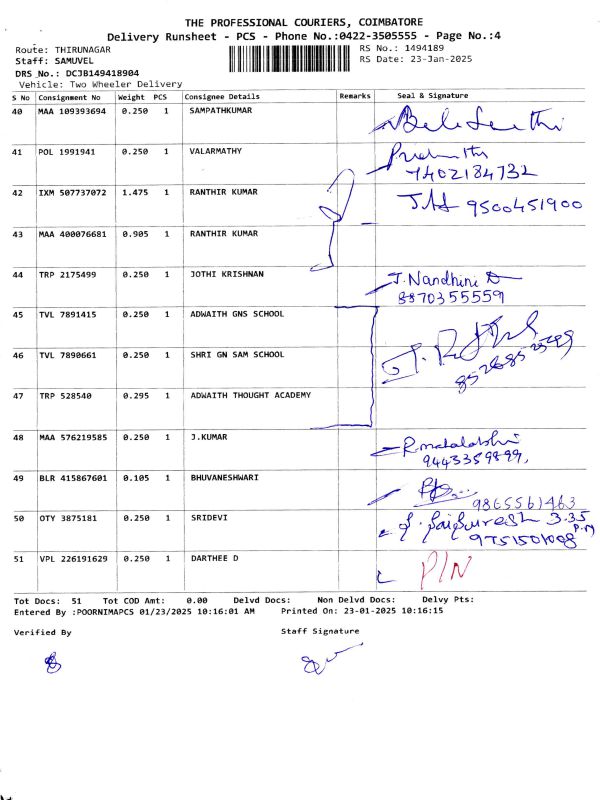 THE PROFESSIONAL COURIERS, COIMBATORE
Delivery Runsheet - PCS - Phone No.:0422-3505555 - Page No.:4
Route: THIRUNAGAR RS No.: 1494189
Staff: SAMUVEL RS Date: 23-Jan-2025
DRS No.: DCJB149418904
Vehicle: Two Wheeler Delivery
S No Consignment No Weight PCS Consignee Details Remarks Seal & Signature
40 MAA 109393694 0.250 1 SAMPATHKUMAR
41 POL 1991941 0.250 1 VALARMATHY
7402184732
42 IXM 507737072 1.475 1 RANTHIR KUMAR 9500451900
43 MAA 400076681 0.905 1 RANTHIR KUMAR
44 TRP 2175499 0.250 1 JOTHI KRISHNAN J. Nandhini
8870355559
45 TVL 7891415 0.250 1 ADWAITH GNS SCHOOL
46 TVL 7890661 0.250 1 SHRI GN SAM SCHOOL
47 TRP 528540 0.295 1 ADWAITH THOUGHT ACADEMY
48 MAA 576219585 0.250 1 J.KUMAR
9443359899,
49 BLR 415867601 0.105 1 BHUVANESHWARI
9865561463
50 OTY 3875181 0.250 1 SRIDEVI 3.35
P.M
9751501098
51 VPL 226191629 0.250 1 DARTHEE D P/N
Tot Docs: 51 Tot COD Amt: 0.00 Delvd Docs: Non Delvd Docs: Delvy Pts:
Entered By :POORNIMAPCS 01/23/2025 10:16:01 AM Printed On: 23-01-2025 10:16:15
Verified By Staff Signature